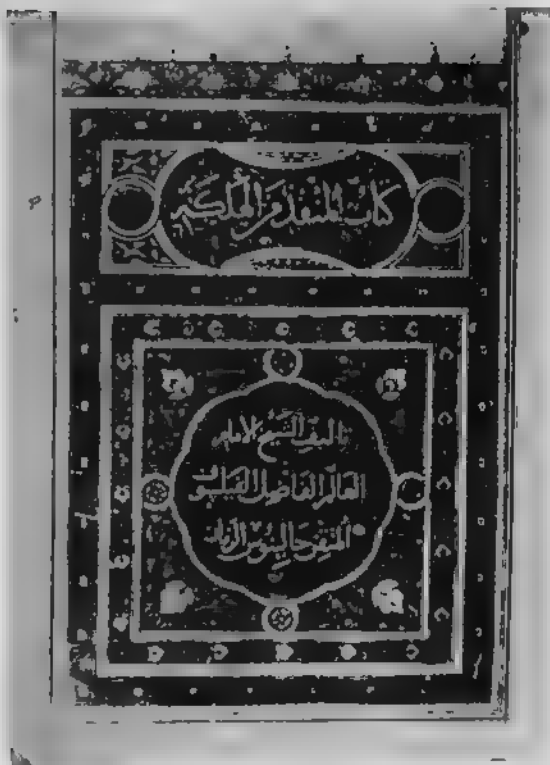 كتاب المنقذ من الهلكة
تاليف الشيخ الامام
العالم الفاضل الفيلسوف
المتقن جالينوس